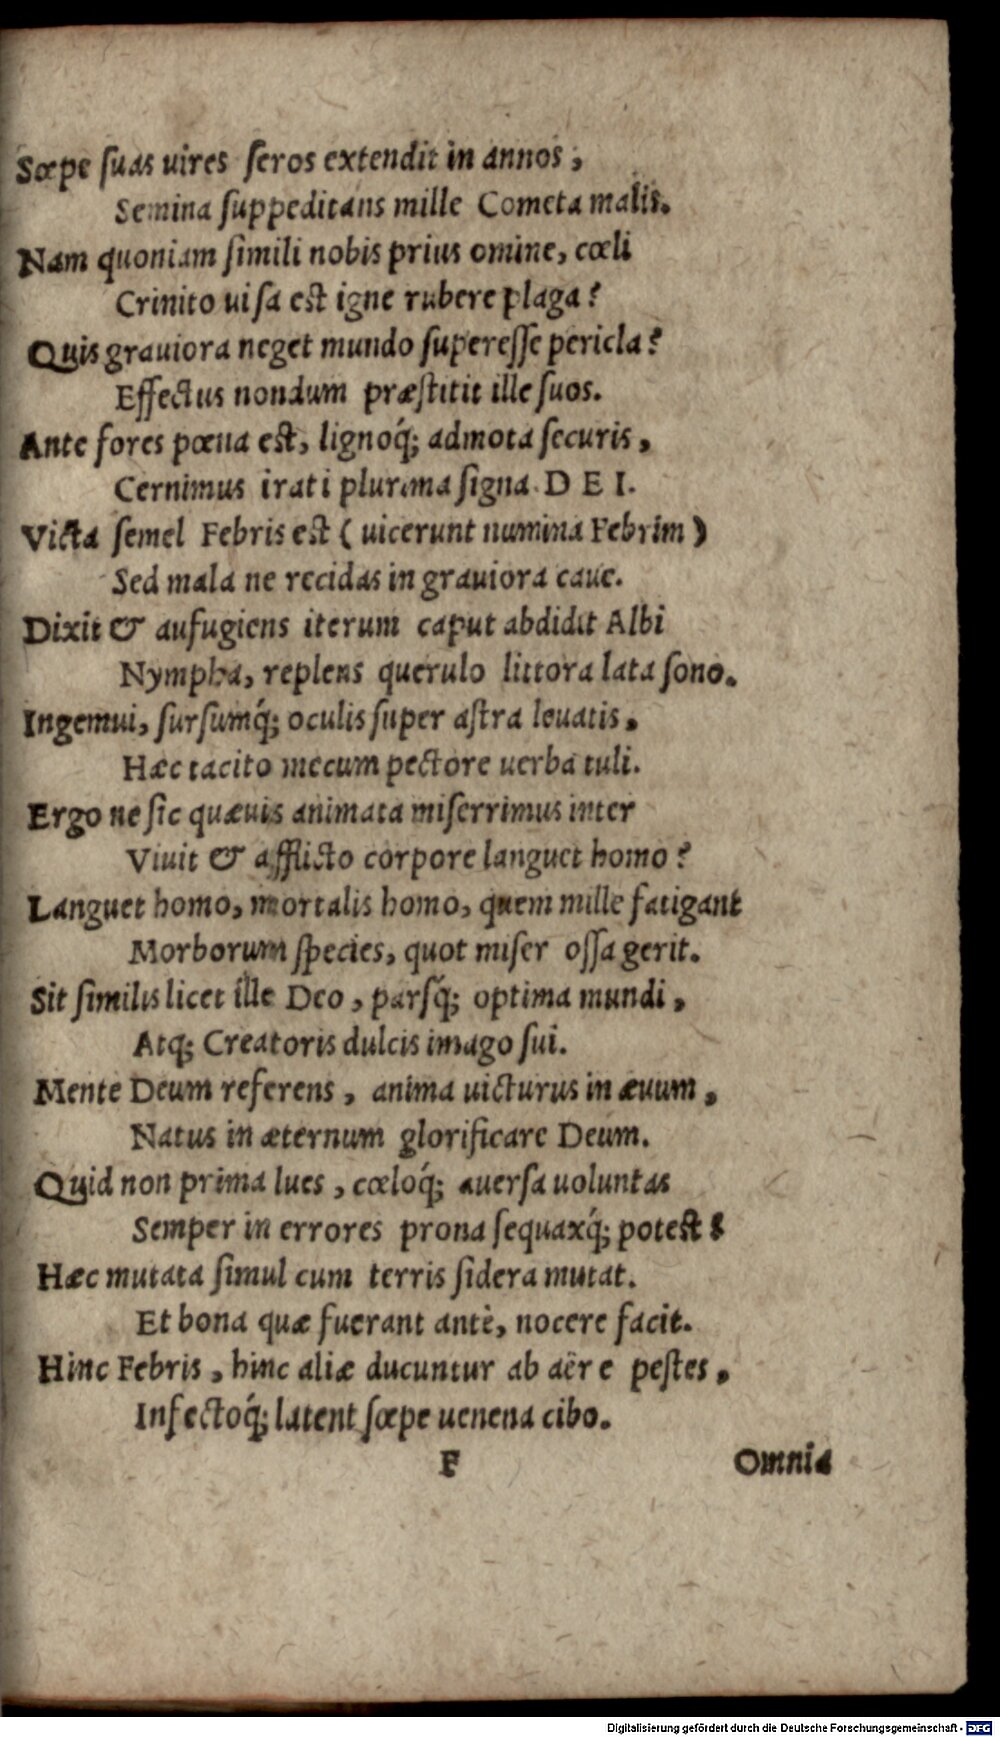 Sœpe ſuas uires ſeros extendit in annos,
Semina ſuppeditans mille Cometa malis.
Nam quoniam ſimili nobis prius omine, cœli
Crinito uiſa eſt igne rubere plaga?
Quis grauiora neget mundo ſupereſſe pericla?
Effectus nondum præſtitit ille ſuos.
Ante fores pœna eſt, lignoq́; admota ſecuris,
Cernimus irati plurima ſigna D E I.
Victa ſemel Febris eſt (uicerunt numina Febrim)
Sed mala ne recidas in grauiora caue.
Dixit & aufugiens iterum caput abdidit Albi
Nympha, replens querulo littora lata ſono.
Ingemui, ſurſumq́; oculis ſuper aſtra leuatis,
Hæc tacito mecum pectore uerba tuli.
Ergo ne ſic quæuis animata miſerrimus inter
Viuit & afflicto corpore languet homo?
Languet homo, mortalis homo, quem mille fatigant
Morborum ſpecies, quot miſer oſſa gerit.
Sit ſimilis licet ille Deo, parſq́; optima mundi,
Atq; Creatoris dulcis imago ſui.
Mente Deum referens, anima uicturus in æuum,
Natus in æternum glorificare Deum.
Quid non prima lues, cœloq́; auerſa uoluntas
Semper in errores prona ſequaxq́; poteſt?
Hæc mutata ſimul cum terris ſidera mutat.
Et bona quæ fuerant antè, nocere facit.
Hinc Febris, hinc aliæ ducuntur ab aëre peſtes,
Infectoq́; latent ſœpe uenena cibo.
F Omnia
Digitalisierung gefördert durch die Deutsche Forschungsgemeinschaft - DFG